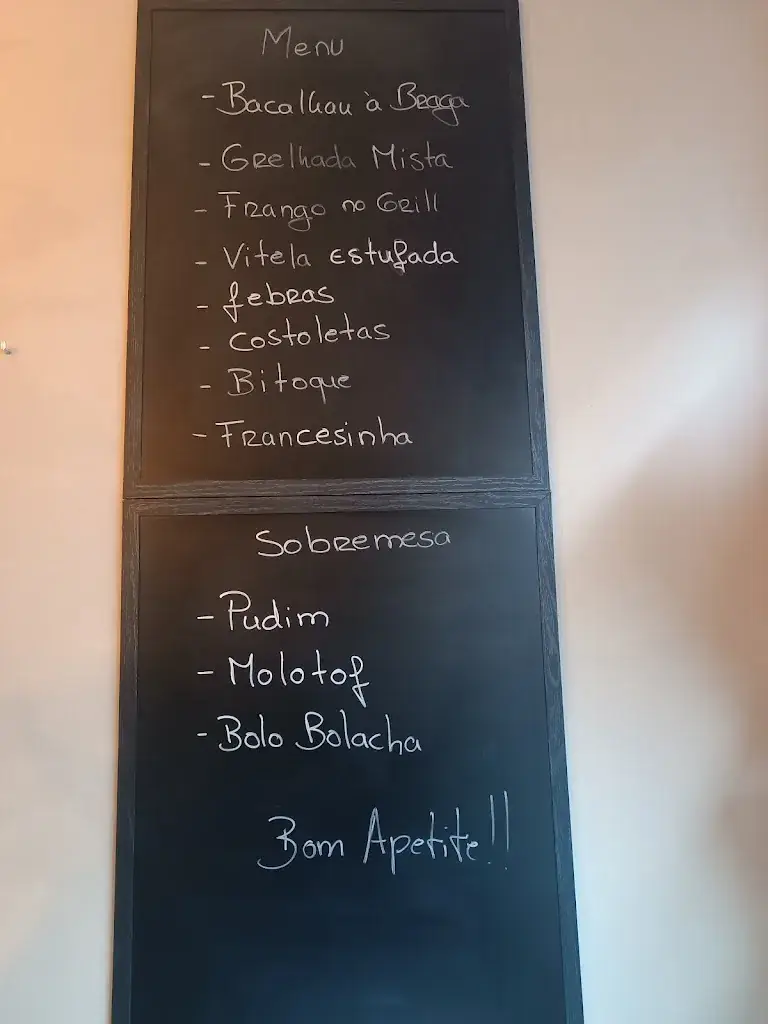 Menu
- Bacalhau à Braga
- Grelhada Mista
- Frango no Grill
- Vitela estufada
- febras
- costoletas
- Bitoque
- Francesinha
Sobremesa
- Pudim
- Molotof
- Bolo Bolacha
Bom Apetite!!